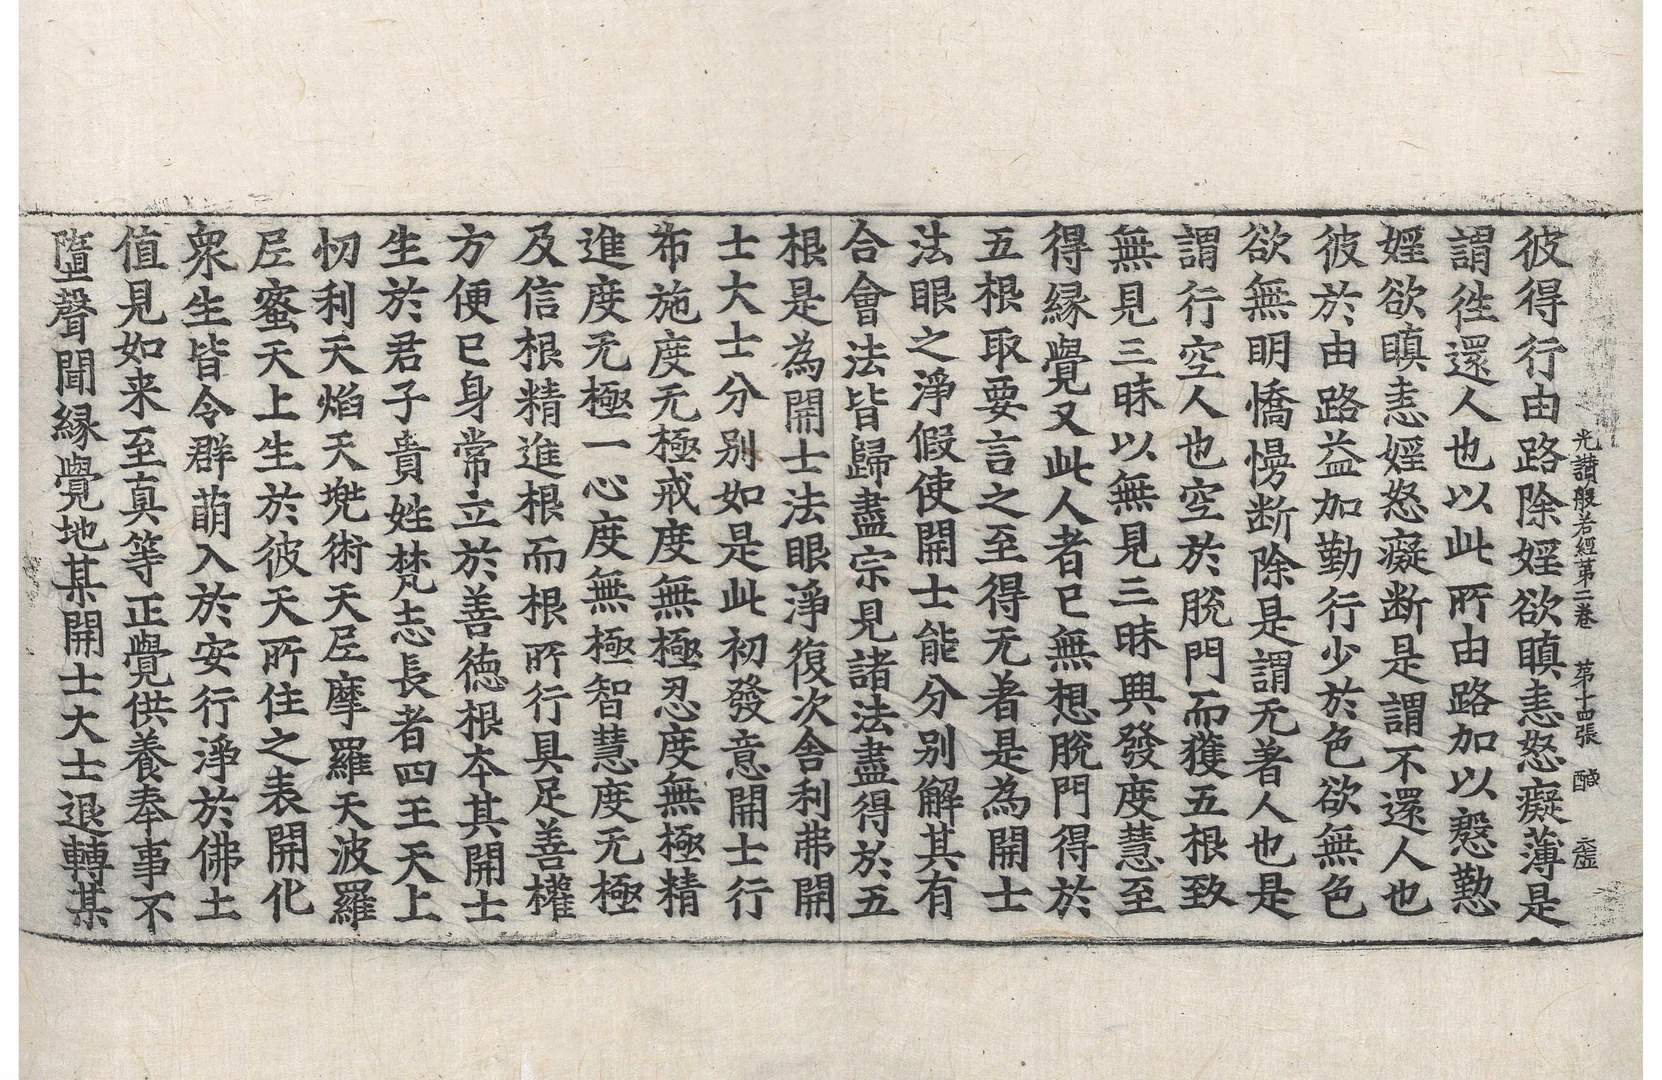 光讃般若經第二卷　第十四張　醎
彼得行由路除婬欲瞋恚怒癡薄是
謂徃還人也以此所由路加以慇懃
婬欲瞋恚婬怒癡断是謂不還人也
彼於由路益加勤行少於色欲無色
欲無明憍慢断除是謂无著人也是
謂行空人也空於脫門而獲五根致
無見三昧以無見三昧興發度慧至
得縁覺又此人者已無想脫門得於
五根取要言之至得无著是為開士
法眼之淨假使開士能分别解其有
合會法皆歸盡宗見諸法盡得於五
根是為開士法眼淨復次舍利弗開
士大士分别如是此初發意開士行
布施度无極戒度無極忍度無極精
進度无極一心度無極智慧度无極
及信根精進根而根所行具足善權
方便已身常立於善德根本其開士
生於君子貴姓梵志長者四王天上
忉利天焰天兠術天尼摩羅天波羅
尼蜜天上生於彼天所住之表開化
衆生皆令群萠入於安行淨於佛土
值見如来至真等正覺供養奉事不
墮聲聞縁覺地某開士大士退轉某